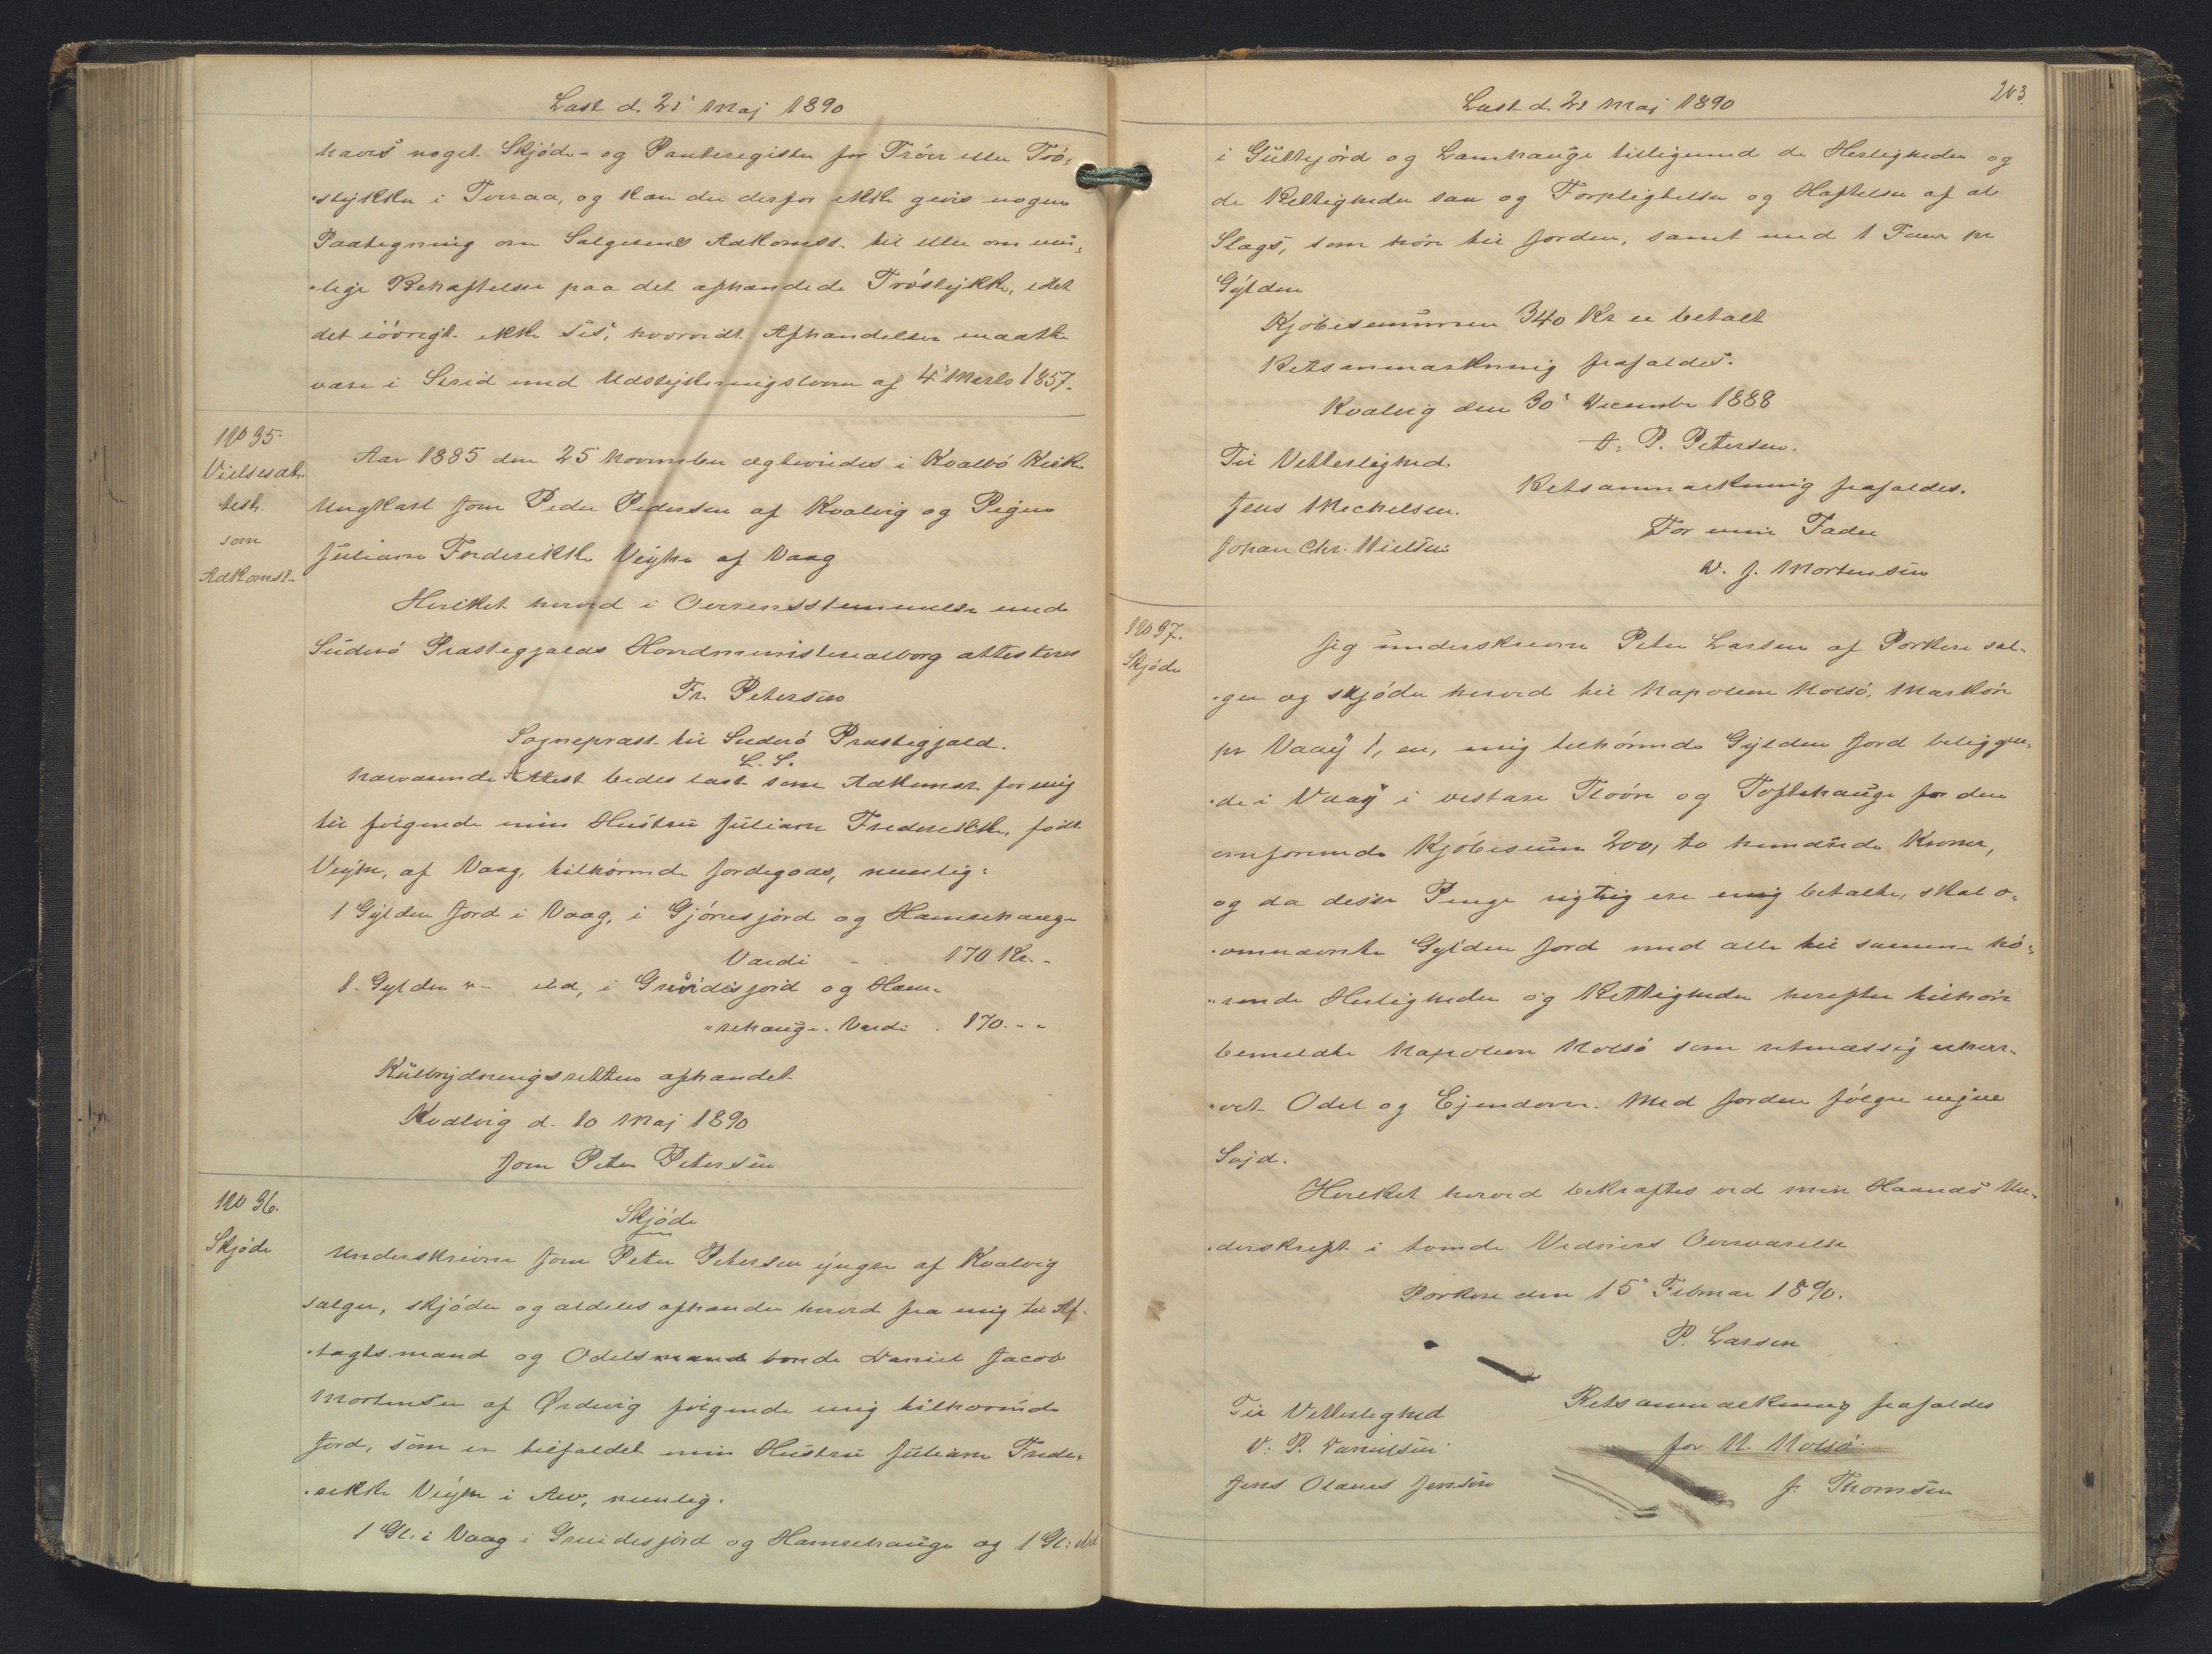 Læst d. 21' Maj 1890
haves noget Skjøde- og Panteregister for Tróer eller Tró-
stykker i Tveraa, og kan der derfor ikke gives nogen
Paategning om Sælgerens Adkomst til eller om mu-
lige Behæftelser paa det afhændede Tróstykke, idet
det iøvrigt ikke ses, hvorvidt Afhændelsen maatte
være i Strid med Udstykningsloven af 4' Marts 1857.
No 35.
Vielsesat-
test.
som
Adkomst
Aar 1885 den 25 November ægteviedes i Kvalbø Kirke
Ungkarl Joen Peder Pedersen af Kvalvig og Pigen
Juliane Frederikke Vejhe af Vaag
Hvilket herved i Overensstemmelse med
Suderø Præstegjælds Hovedministerialbog attesteres
Fr. Petersen
Sognepræst til Suderø Præstegjæld.
L. S.
Nærværende Attest bedes læst som Adkomst for mig
til følgende min Hustru Juliane Frederikke, født
Vejhe, af Vaag, tilhørende Jordegods, nemlig:
1 Gylden Jord i Vaag, i Gjørnesjord og Hamrehauge
Værdi - . 170 Kr. -
1. Gylden " - ibd, i Gruidesjord og Ham-
rehauge. Værdi . 170. - -
Kulbrydningsretten afhændet
Kvalvig d. 10 Maj 1890
Joen Peter Petersen
No 36.
Skjøde
Skjøde
Underskrevne Joen Peter Petersen yngre af Kvalvig
sælger, skjøder og aldeles afhænder herved fra mig til Af-
tægtsmand og Odelsmand bonde Daniel Jacob
Mortensen af Ørdevig følgende mig tilhørende
Jord, som er tilfaldet min Hustru Juliane Frede-
rikke Vejhe i Arv, nemlig:
1 Gl. i Vaag i Gruidesjord og Hamrehauge og 1 Gl: ibd
Læst d. 21 Maj 1890
203.
i Guttejørd og Lamhauge tilligemed de Herligheder og
de Rettigheder saa og Forpligtelser og Hæftelser af al
Slags, som hører til Jorden, samt med 1 Faar pr
Gylden
Kjøbesummen 340 Kr er betalt
Retsanmærkning frafaldes.
Kvalvig den 30' December 1888
J. P. Petersen.
Til Vitterlighed.
Jens Mechelsen.
Johan Chr. Nielsen
Retsanmærkning frafaldes.
For min Fader
D. J. Mortensen
No 37.
Skjøde
Jeg underskrevne Peter Larsen af Porkere sæl-
ger og skjøder herved til Napoleon Nolsø, Markøre
pr Vaag 1, en, mig tilhørende Gylden Jord beliggen-
de i Vaag i vestare Floóre og Toftehauge for den
omforende Kjøbesum 200, to hundrede Kroner,
og da disse Penge rigtig ere mig betalte, skal o-
vennævnte Gylden Jord med alle til samme hø-
rende Herligheder og Rettigheder herefter tilhøre
bemeldte Napoleon Nolsø som retmæssig erhver-
vet Odel og Ejendom. Med Jorden følger ingen
Sojd.
Hvilket herved bekræftes ved min Haands Un-
derskrift i tvende Vidners Overværelse
Porkere den 15' Februar 1890.
P. Larsen
Til Vitterlighed
D. P. Danielsen
Jens Olaus Jensen
Retsanmærkning frafaldes
for N. Nolsø
J. Thomsen